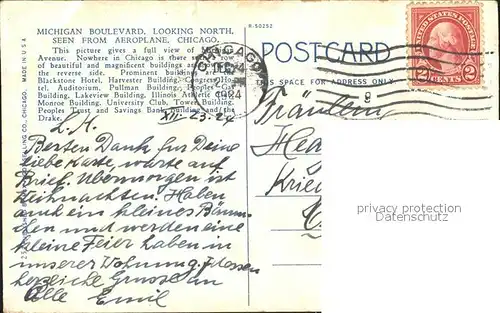 MICHIGAN BOULEVARD, LOOKING NORTH,
SEEN FROM AEROPLANE, CHICAGO.
This picture gives a full view of Michigan
Avenue. Nowhere in Chicago is there seen a row
of beautiful and magnificent buildings as on
the reverse side. Prominent buildings are
Blackstone Hotel, Harvester Building, Congress Ho-
tel, Auditorium, Pullman Building, Peoples Gas
Building, Lakeview Building, Illinois Athletic Club,
Monroe Building, University Club, Tower Building,
Peoples Trust and Savings Bank Building and the
Drake.
MADE IN U.S.A.
R-50252
CHICAGO
DEC
1924
POSTCARD
THIS SPACE FOR ADDRESS ONLY
UNITED STATES POSTAGE
2 CENTS 2
XII-23.24
L. M.
Besten Dank für Deine
liebe Karte, warte auf
Brief. Übermorgen ist
Weihnachten. Haben
auch ein kleines Bäum-
chen und werden eine
kleine Feier haben in
unserer Wohnung.
herzliche Grüsse an
Alle Emil
Fräulein
privacy protection
Datenschutz